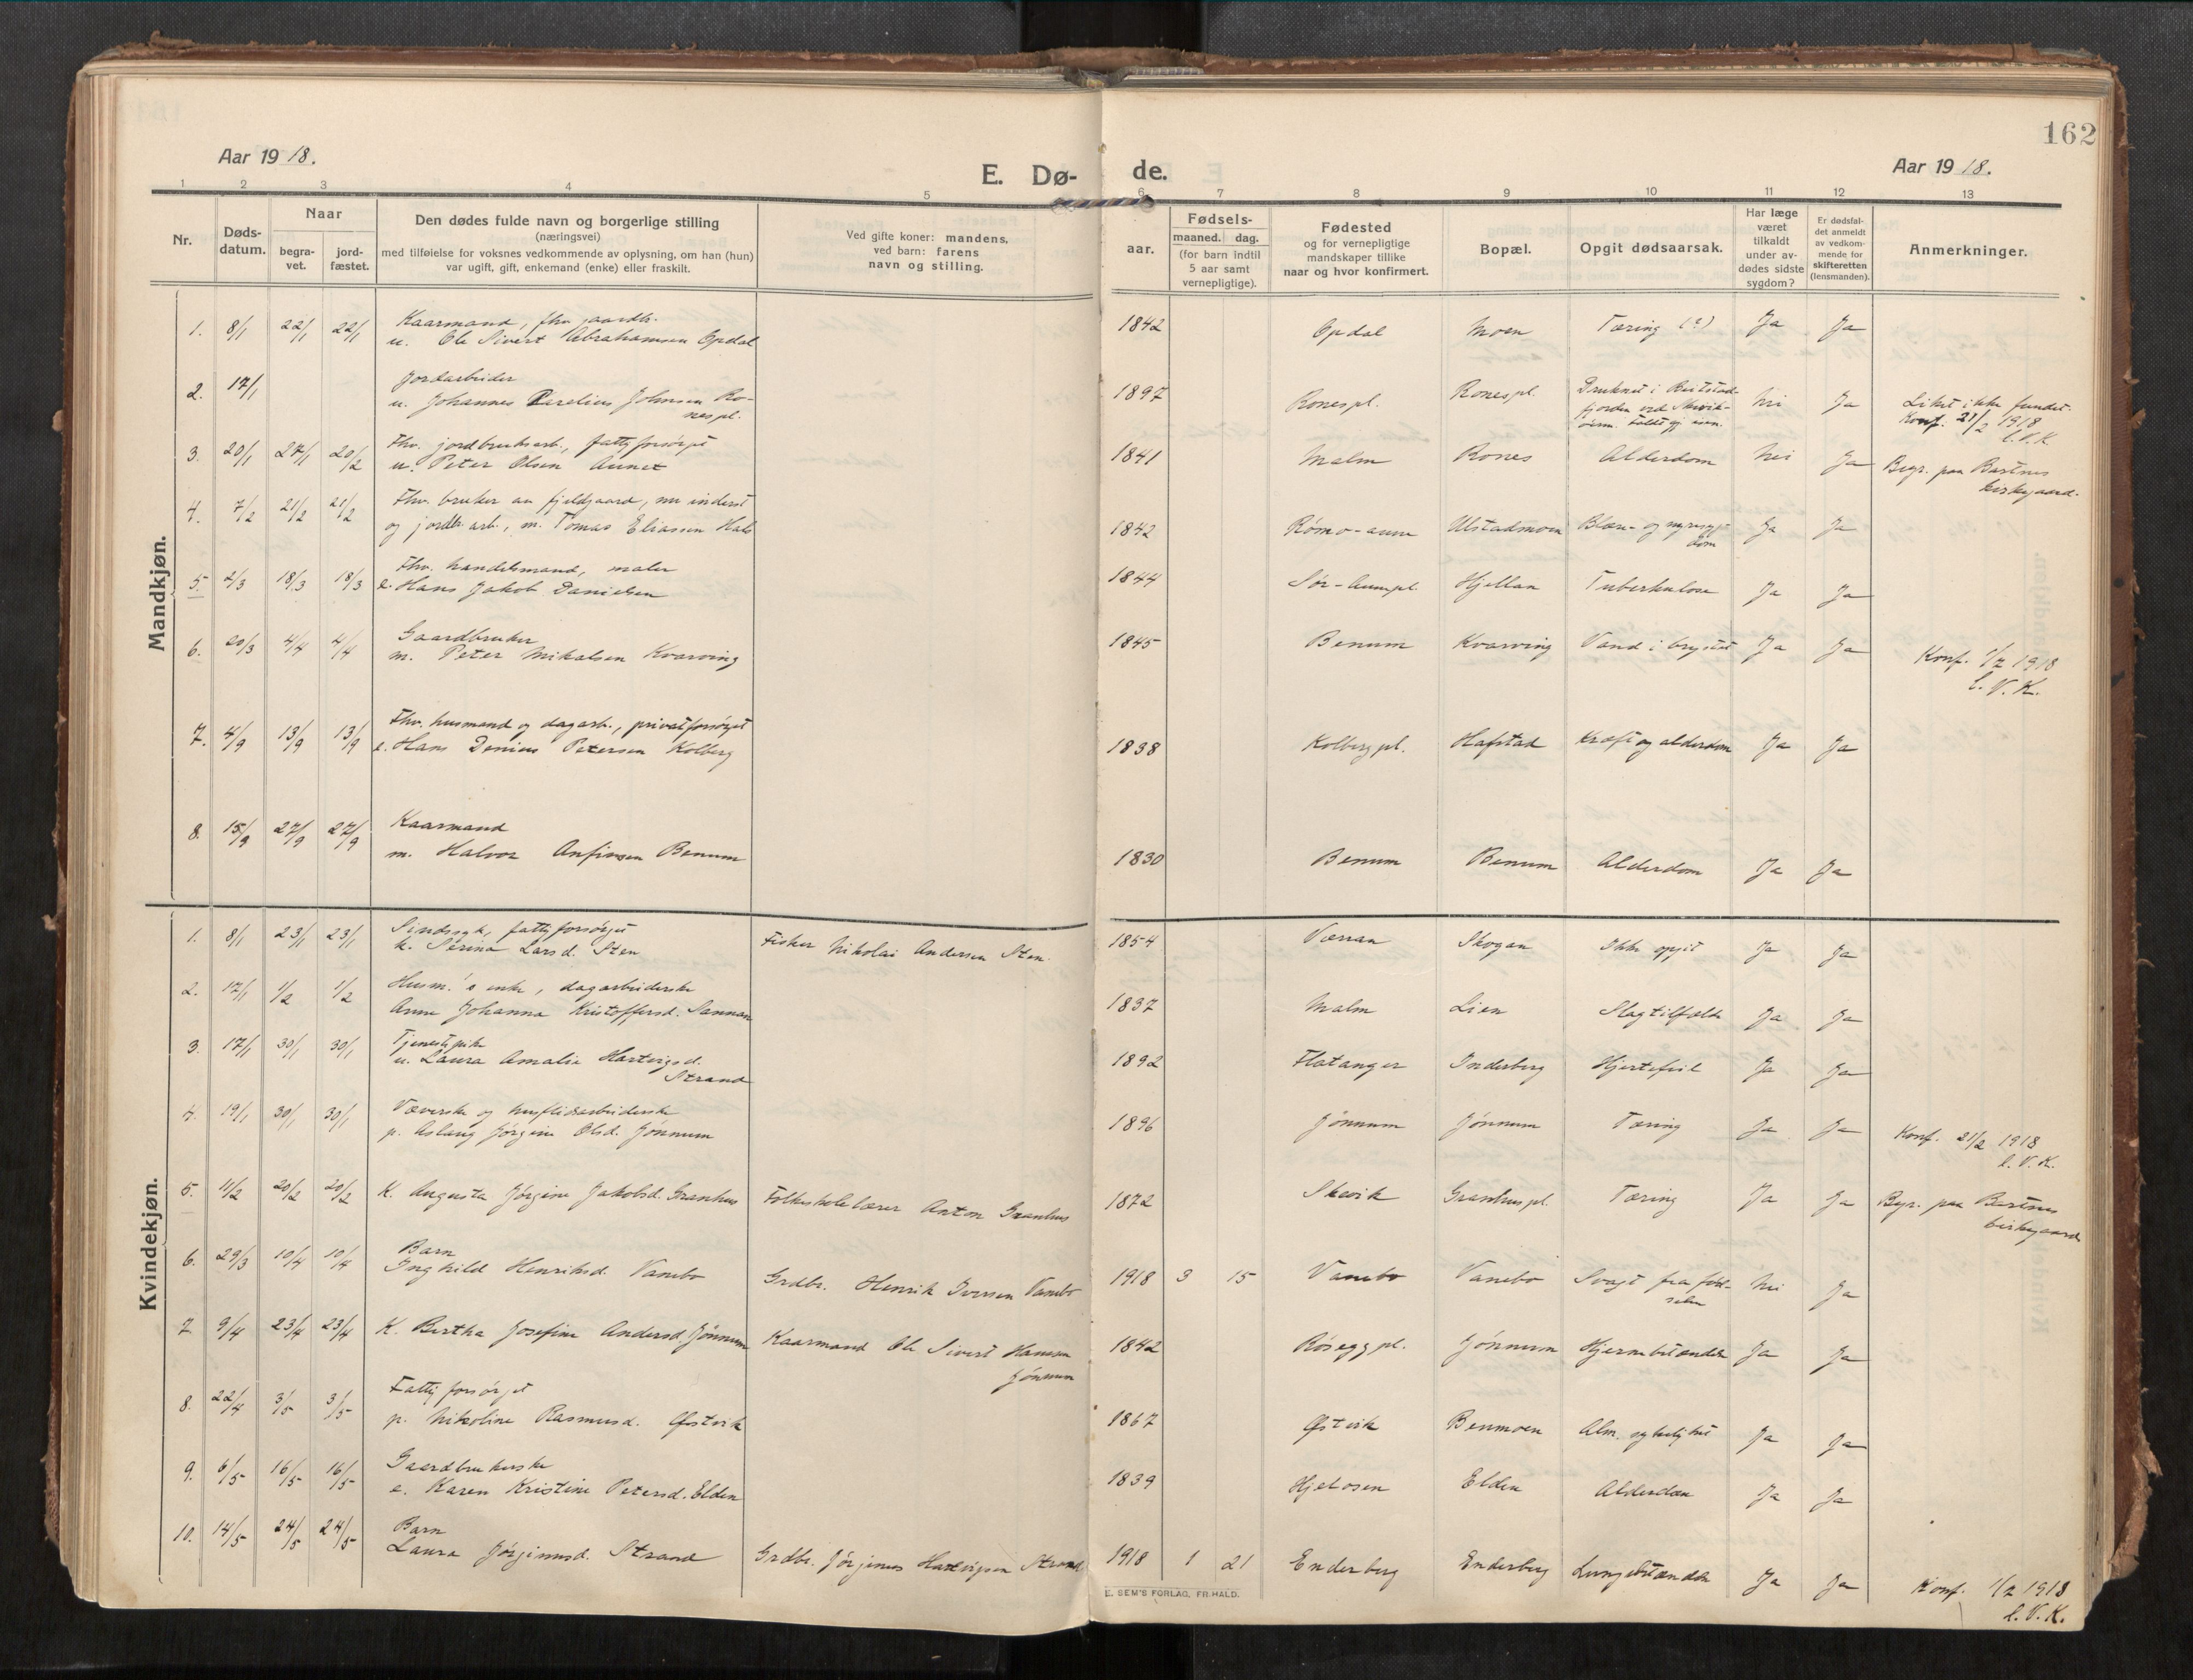 162
Aar 1918.
E. Dø- de.
Aar 1918.
1 2 3 4 5 6 7 8 9 10 11 12 13
Nr.
Døds-
datum.
Naar
begra-
vet.
jord-
fæstet.
Den dødes fulde navn og borgerlige stilling
(næringsvei)
med tilføielse for voksnes vedkommende av oplysning, om han (hun)
var ugift, gift, enkemand (enke) eller fraskilt.
Ved gifte koner: mandens,
ved barn: farens
navn og stilling.
Fødsels-
aar. maaned. dag.
(for barn indtil
5 aar samt
vernepligtige).
Fødested
og for vernepligtige
mandskaper tillike
naar og hvor konfirmert.
Bopæl.
Opgit dødsaarsak.
Har læge
været
tilkaldt
under av-
dødes sidste
sygdom?
Er dødsfal-
det anmeldt
av vedkom-
mende for
skifteretten
(lensmanden).
Anmerkninger.
Mandkjøn.
Kaarmand, fhv. gaardb.
1. 8/1 22/1 22/1 u. Ole Sivert Abrahamsen Opdal 1842 Opdal Moen Tæring (?) Ja Ja
Jordarbeider
2. 17/1 u. Johannes Parelius Johnsen Ro-
nespl. 1897 Ronespl. Ronespl. Druknet i Beitstad-
fjorden ved Skevik- Nei Ja Liket ikke fundet.
Konf. 21/2 1918
L.V.K.
Fhv. jordbruksarb., fattigforsørget
3. 20/1 27/1 20/2 u. Peter Olsen Aunet 1841 Malm Rones Alderdom Nei Ja Begr. paa Bartnes
kirkegaard.
Fhv. bruker av fjeldgaard, nu inderst
4. 7/2 21/2 21/2 og jordbr. arb., m. Tomas Eliassen Hals 1842 Rømo-aune Ulstadmoen Blære- og nyresyg-
dom Ja Ja
Fhv. handelsmand, maler
5. 2/3 18/3 18/3 e. Hans Jakob Danielsen 1844 Sør-Aunepl. Hjellan Tuberkulose Ja Ja
Gaardbruker
6. 20/3 4/4 4/4 m. Peter Mikalsen Kvarving 1845 Benum Kvarving Vand i brystet Ja Ja Konf. 1/7 1918
L.V.K.
Fhv. husmand og dagarb., privatforsørget
7. 4/9 13/9 13/9 e. Hans Petersen Kolberg 1838 Kolbergpl. Hafstad Kræft og alderdom Ja Ja
Kaarmand
8. 15/9 27/9 27/9 m. Halvor Anfinsen Benum 1830 Benum Benum Alderdom Ja Ja
Kvindekjøn.
Sindssyk, fattigforsørget
1. 8/1 23/1 23/1 k. Serina Larsd. Sten Fisker Nikolai Andersen Sten. 1854 Værran Skogan Ikke opgit Ja Ja
Husm.'s enke, dagarbeiderske
2. 17/1 1/2 1/2 Anne Johanna Kristoffersd. Sannan 1837 Malm Lien Slagtilfælde Ja Ja
Tjenestepike
3. 17/1 30/1 30/1 u. Laura Amalie Hartvigsd.
Strand 1892 Flatanger Inderberg Hjertefeil Ja Ja
Væverske og husflidsarbeiderske
4. 19/1 30/1 30/1 p. Aslaug Jørgine Olsd. Jønnum 1896 Jønnum Jønnum Tæring Ja Ja Konf. 21/2 1918
L.V.K.
5. 11/2 20/2 20/2 K. Augusta Jørgine Jakobsd. Granhus Folkeskolelærer Anton Granhus 1872 Skevik Granhuspl. Tæring Ja Ja Begr. paa Bartnes
kirkegaard
Barn
6. 29/3 10/4 10/4 Inghild Henriksd. Vanebo Grdbr. Henrik Iversen Vanebo 1918 3 15 Vanebo Vanebo Svagt fra fød-
selen Nei Ja
7 9/4 23/4 23/4 K. Bertha Josefine Andersd. Jønnum Kaarmand Ole Sivert Hansen
Jønnum 1842 Røseggpl. Jønnum Hjernebetændelse Ja Ja
Fattigforsørget
8. 22/4 3/5 3/5 p. Nikoline Rasmusd. Østvik 1867 Østvik Benmoen Alm. sykelighet Ja Ja
Gaardbrukerske
9. 6/5 16/5 16/5 e. Karen Kristine Petersd. Elden 1839 Hjelosen Elden Alderdom Ja Ja
Barn
10. 14/5 24/5 24/5 Laura Jørginusd. Strand Grdbr. Jørginus Hartvigsen Strand 1918 1 21 Enderberg Enderberg Lungebetændelse Ja Ja Konf. 1/7 1918
L.V.K.
E. SEM'S FORLAG, FR.HALD.